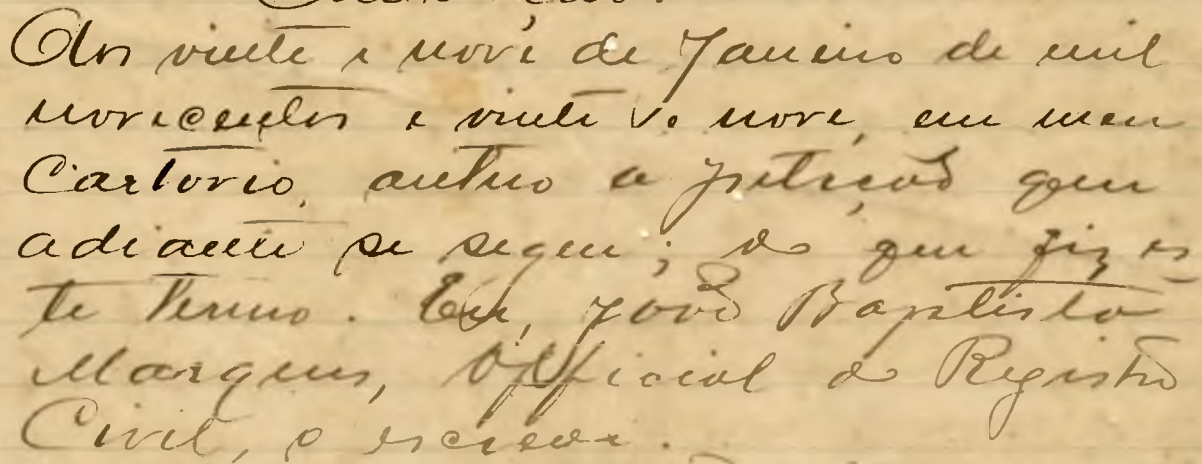 Aos vinte e nove de Janeiro de mil
novecentos e vinte e nove, em meu
Cartorio, autuo a petição que
adiante se segue; do que fiz es
te termo. Eu, João Baptista
Marques, Official do Registro
Civil, o escrevi.